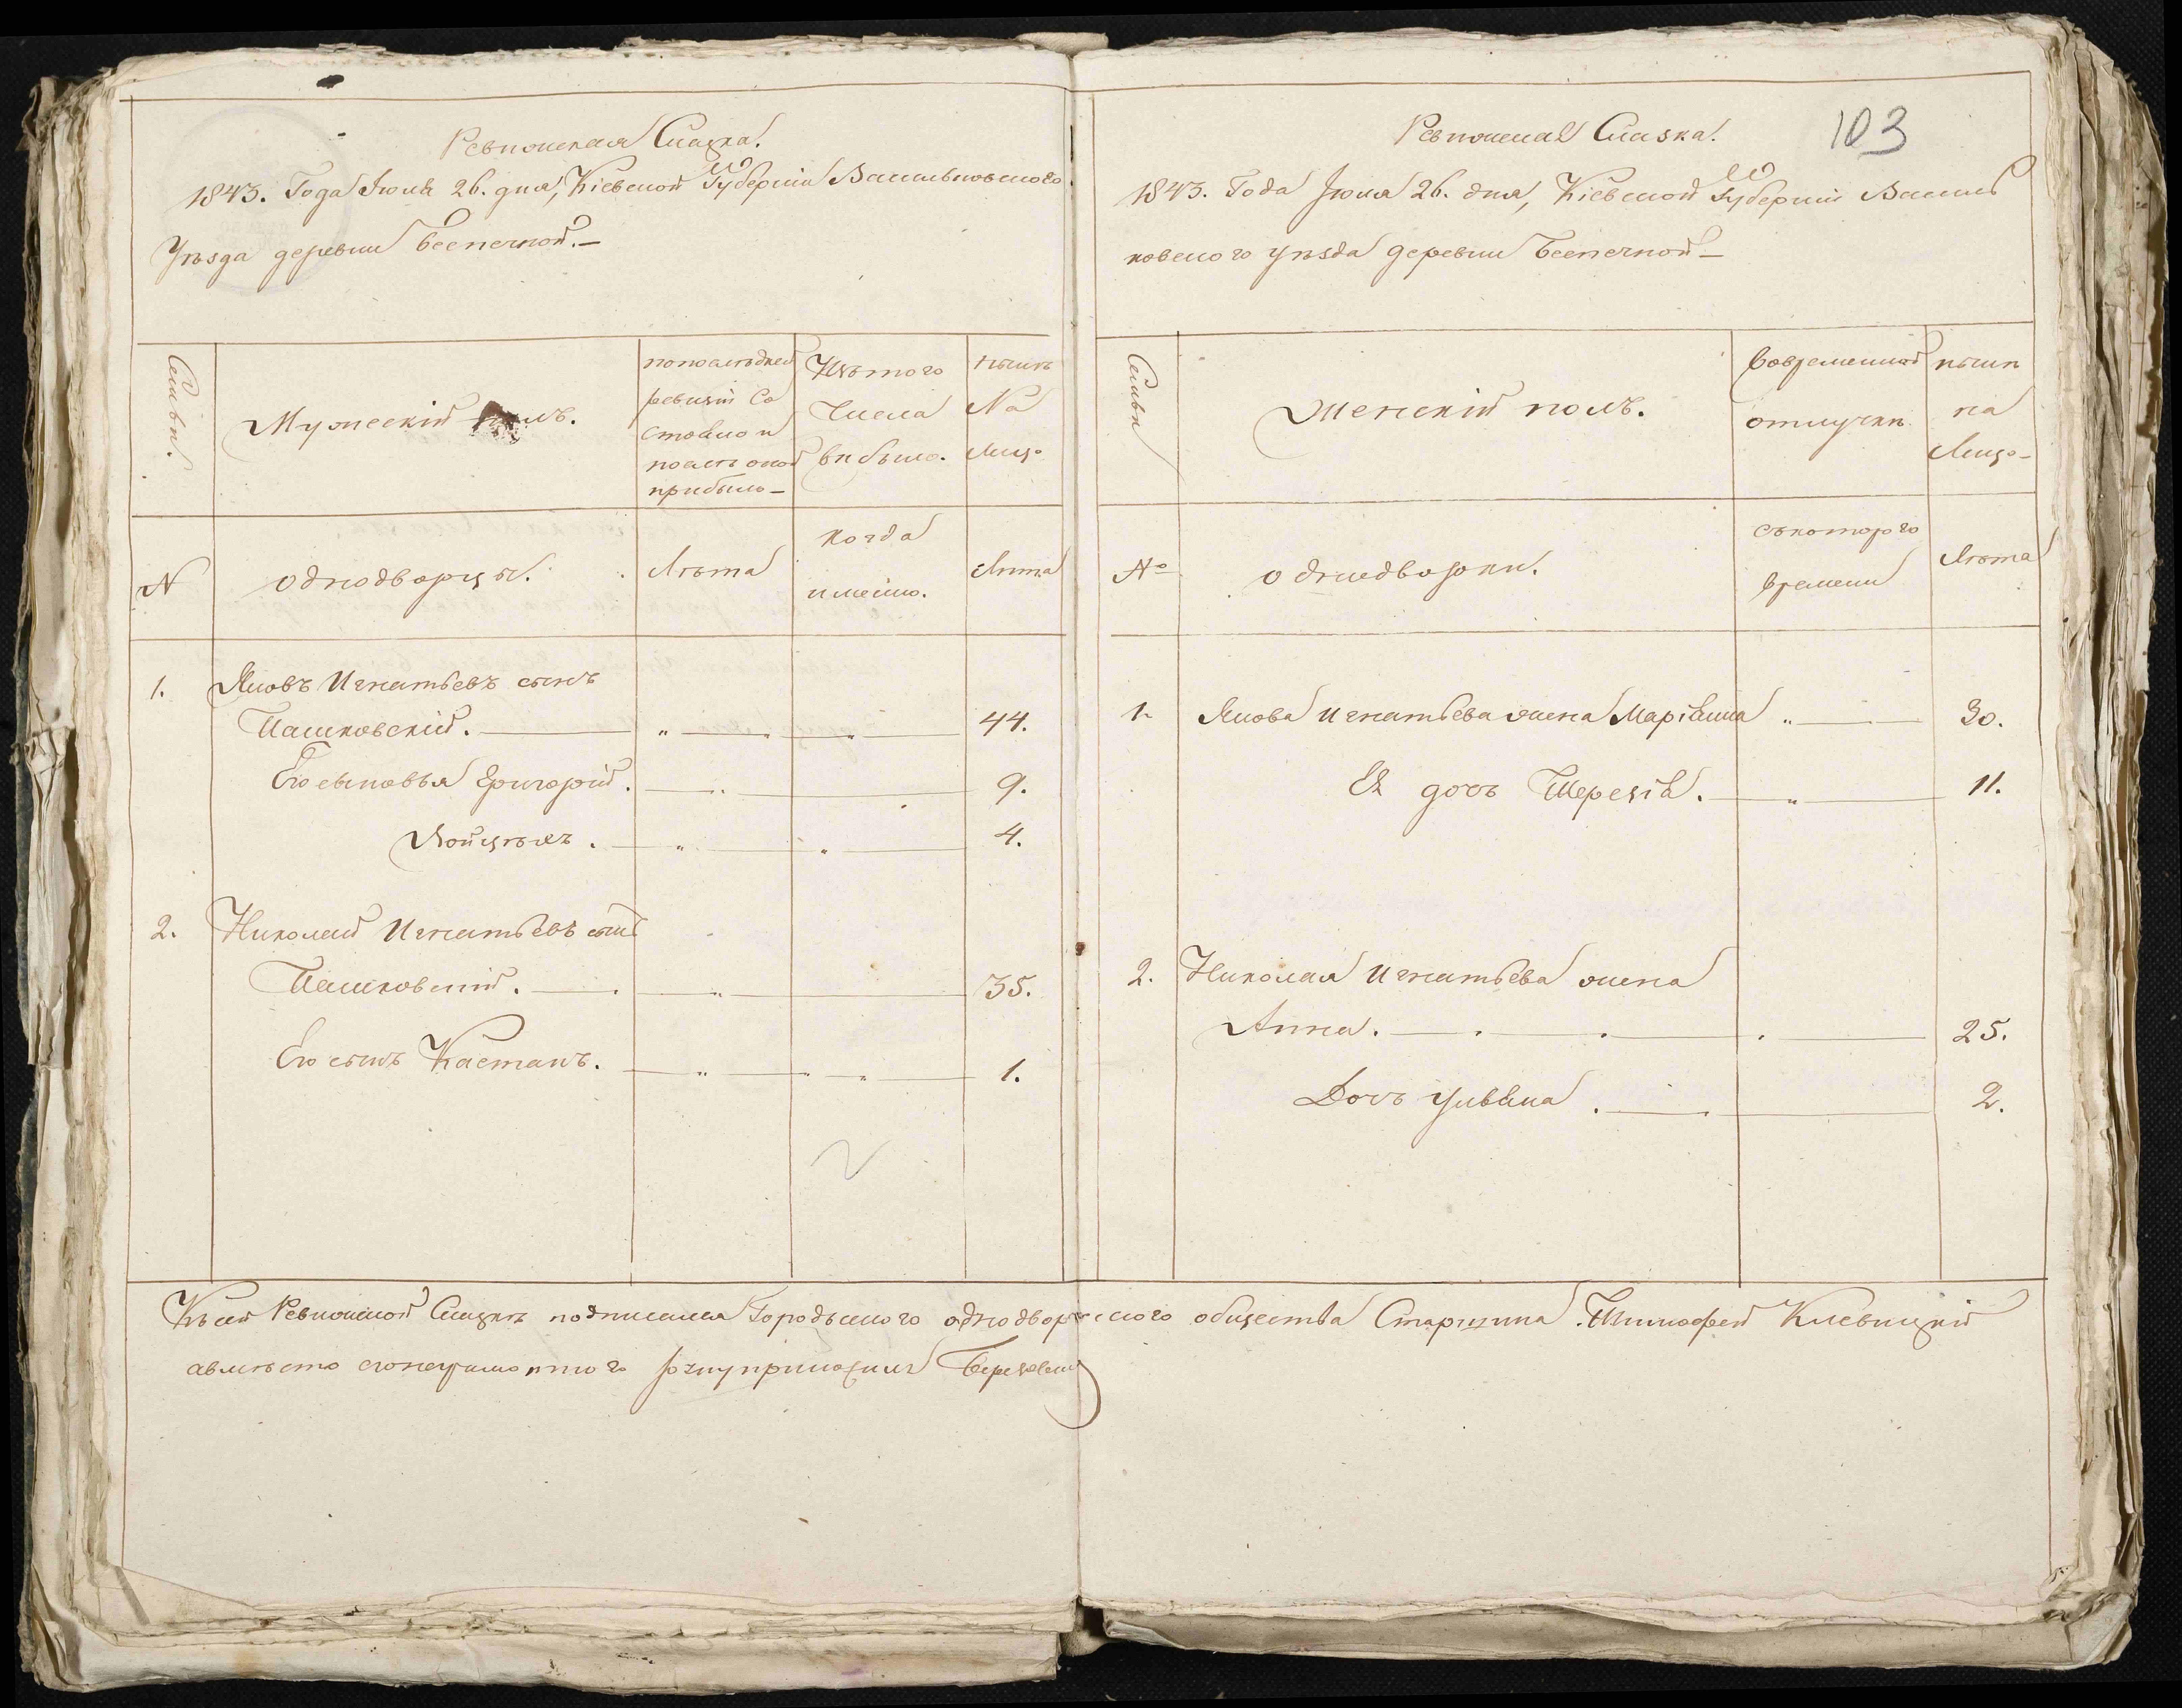 Ревизская Сказка.
1843. Года Июля 26. дня, Кіевской Губерніи Васильковского
Уѣзда деревни Беспечной.—
Семьи.
Мужескій полъ.
попослѣдней
ревизіи Со
стояло и
послѣ оной
прибыло—
Изъ того
Числа
выбыло.
нынѣ
На
лицо
N
однодворцы.
Лѣта
когда
имянно.
Лѣта
1.
Яковъ Игнатьевъ сынъ
Пашковскій. 44.
Его сыновья Григорій. 9.
Войцѣхъ. 4.
2.
Николай Игнатьевъ сынъ
Пашковскій. 35.
Его сынъ Каетанъ. 1.
103
Ревизская Сказка.
1843. Года Июля 26. дня, Кіевской Губерніи Василь
ковского уѣзда деревни Беспечной—
Семьи
Женскій полъ.
Вовременной
отлучкѣ
нынѣ
на
Лицо—
№
однодворки.
Съкоторого
времени
Лѣта
1. Якова Игнатьева жена Маріанна 30.
Ея дочь Терезія. 11.
2. Николая Игнатьева жена
Анна. 25.
Дочь 2.
Ксей Ревизской Сказкѣ подписался Городьского однодворческого общества Старшина Тимофей Клевицкій
авмѣсто его неграмотного руку приложилъ